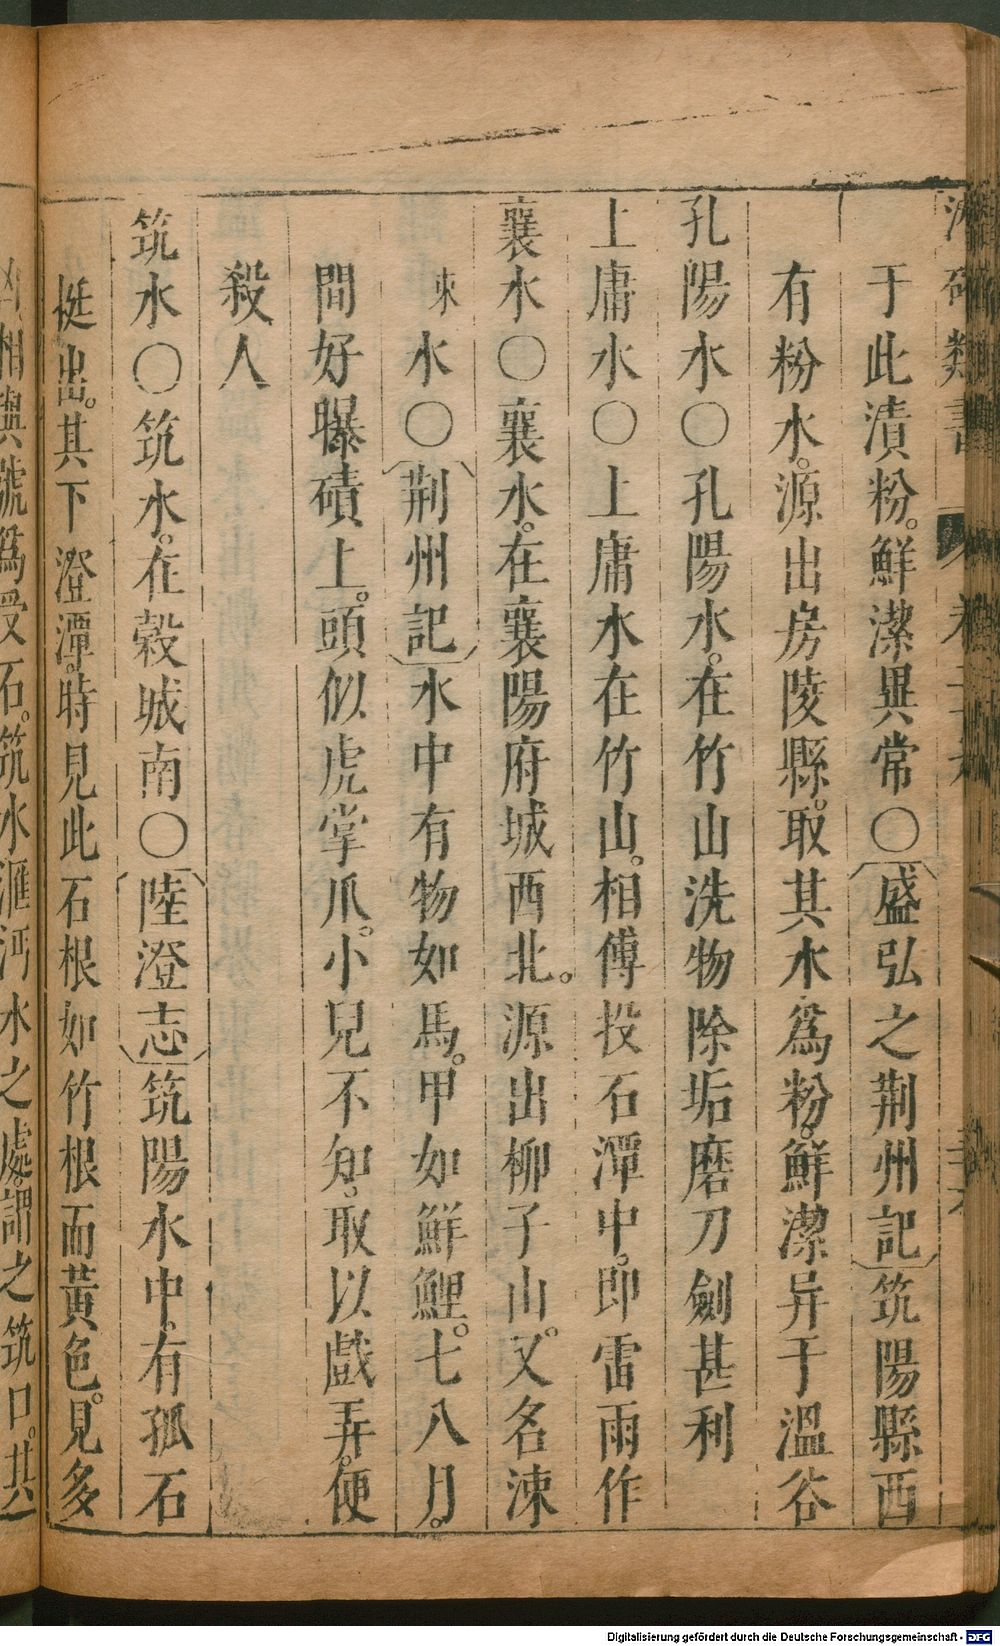 于此漬粉。鮮潔異常〇盛弘之荆州記筑陽縣西
有粉水。源出房陵縣。取其水爲粉。鮮潔异于溫谷
孔陽水〇孔陽水。在竹山洗物除垢磨刀劍甚利
上庸水〇上庸水在竹山。相傅投石潭中。即雷雨作
襄水〇襄水。在襄陽府城西北。源出柳子山。又名涑
涑水〇荆州記水中有物如馬。甲如鮮鯉。七八月。
間好曝磧上。頭似虎掌爪。小兒不知。取以戲弄。便
殺人
筑水〇筑水。在穀城南〇陸澄志筑陽水中。有孤石
挺出。其下澄潭。時見此石根如竹根而黃色。見多
凶相與號爲受石。筑水滙沔水之處。謂之筑口。其
Digitalisierung gefördert durch die Deutsche Forschungsgemeinschaft - DFG